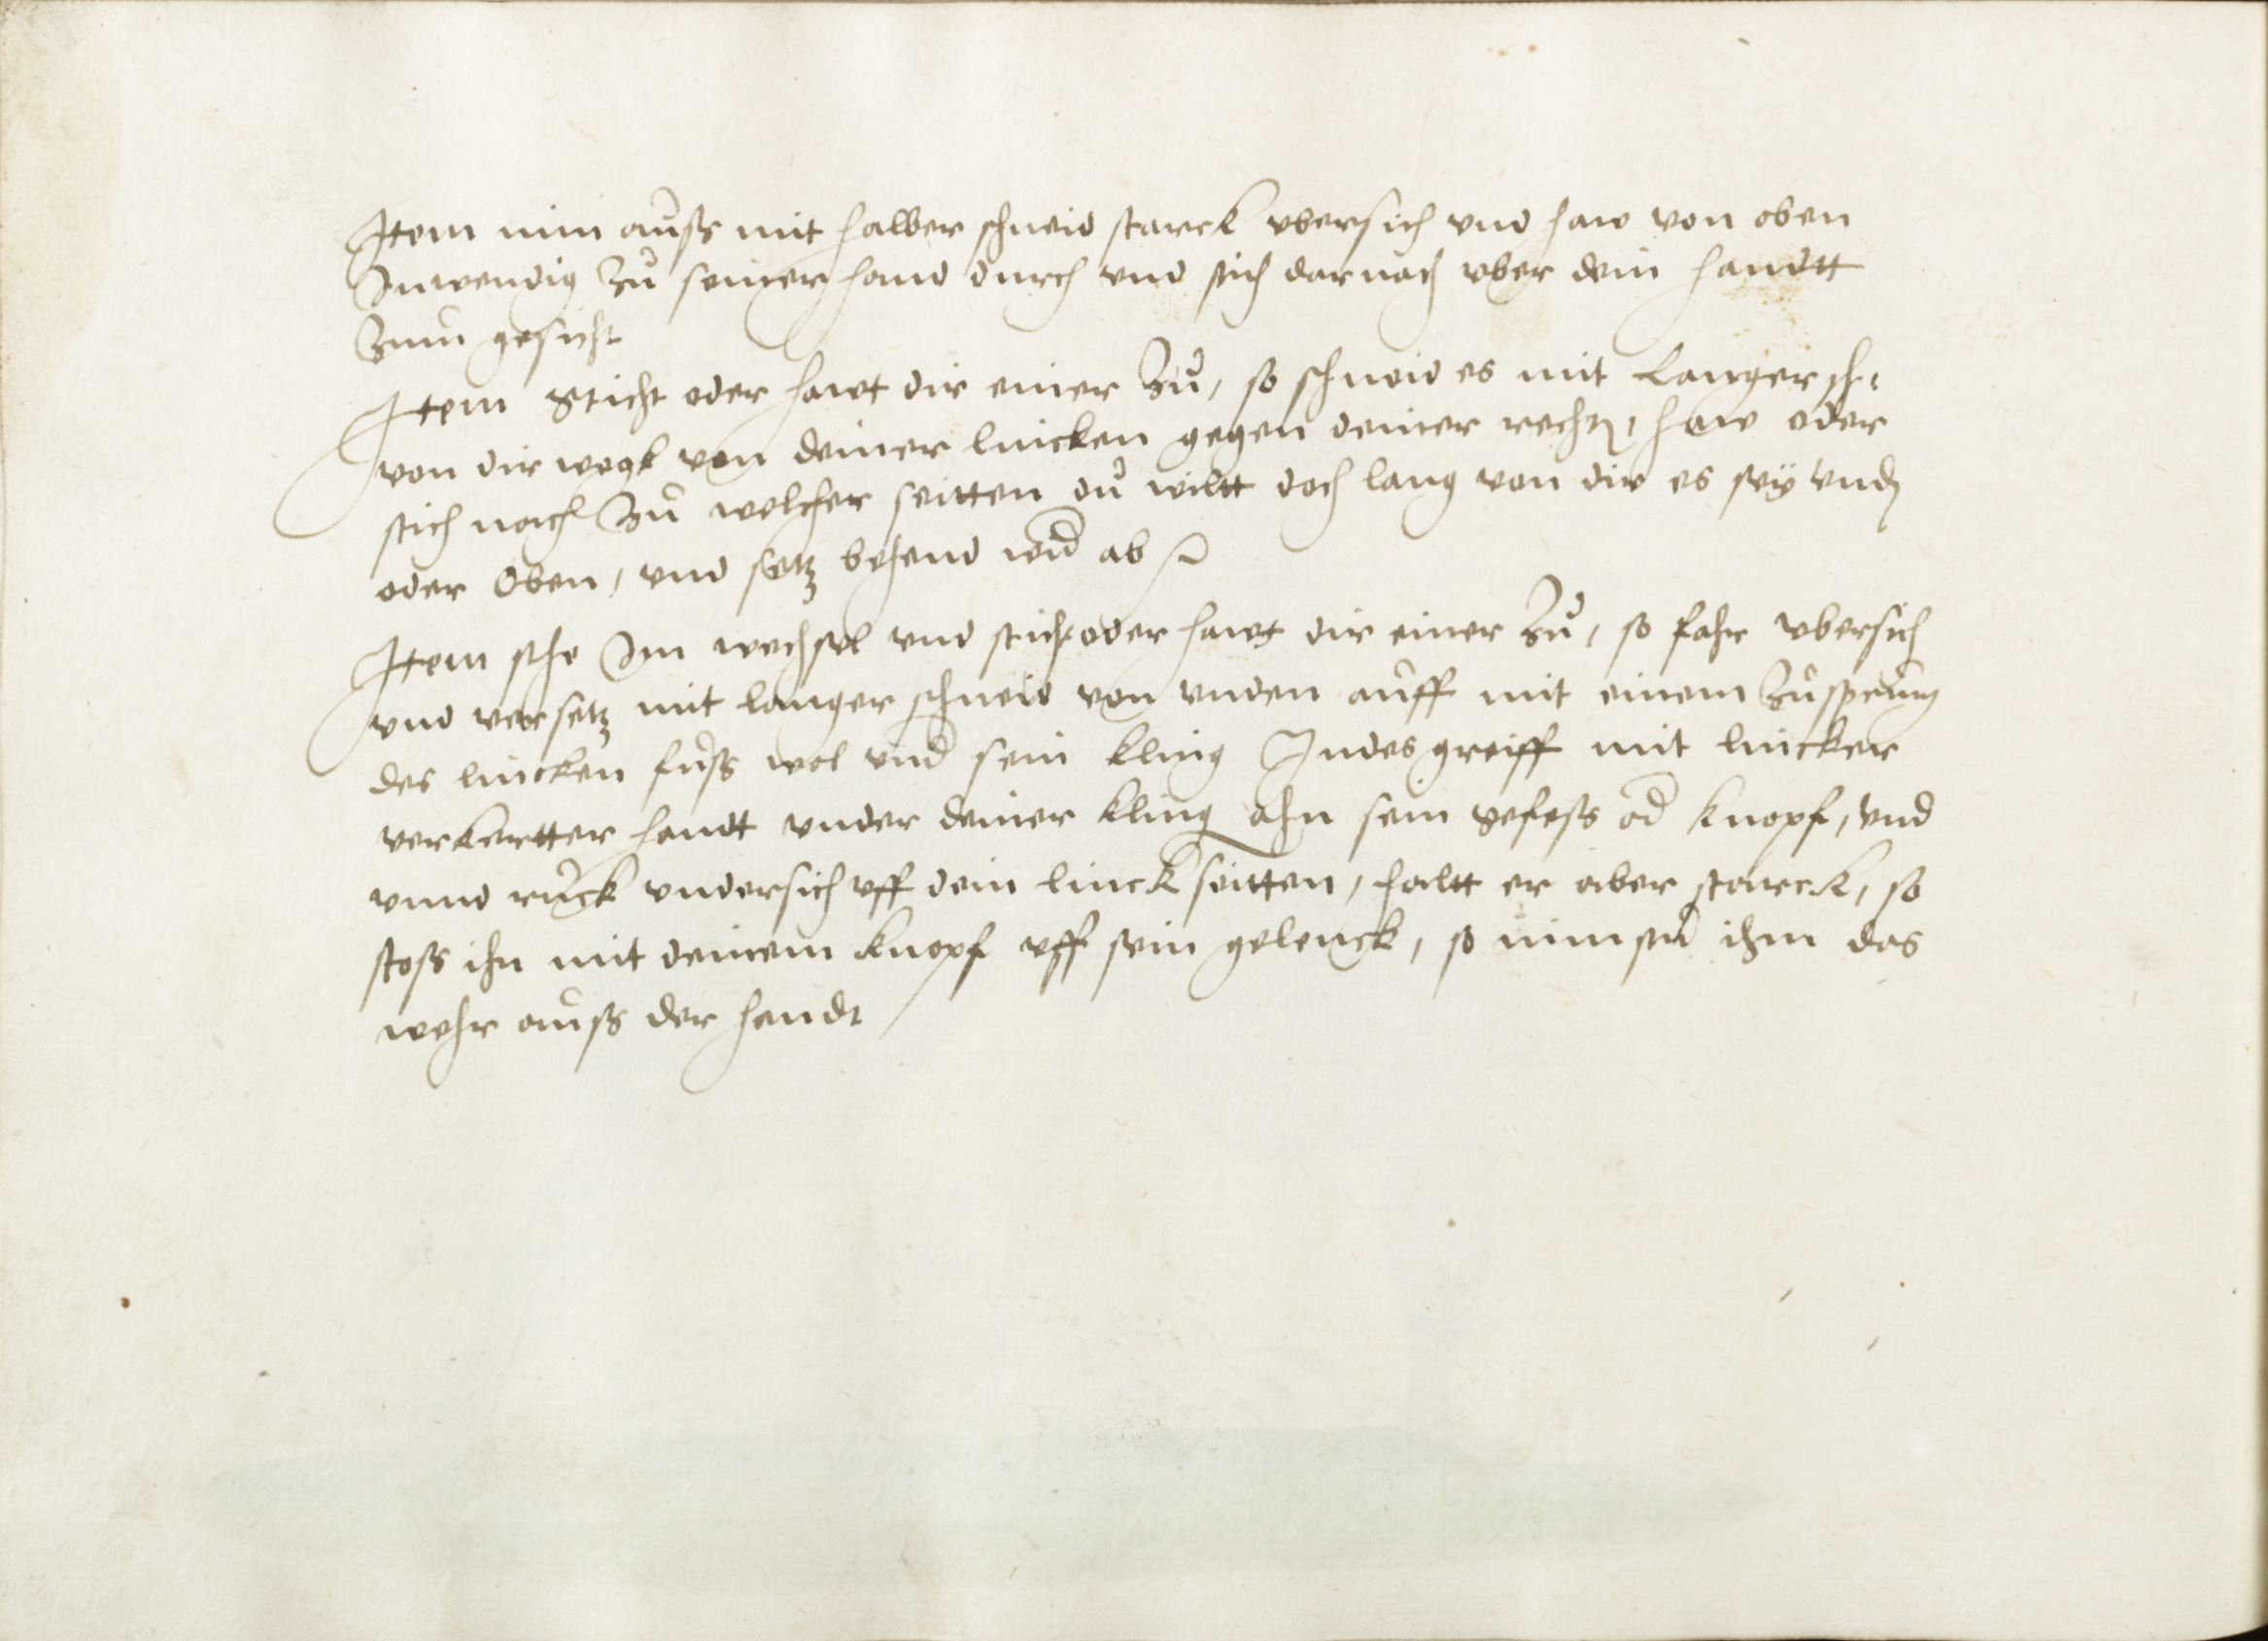 Item nim auß mit halber schneid starck vbersich vnd haw von oben
Inwendig zu seiner hand durch vnd stich darnach vber dein handtt
zum gesicht
Item Sticht oder hawt dir einer zu, so schneid es mit langer sch:
von dir wegk von deiner lincken gegen deiner rechtn, haw oder
stich nach zu welcher seitten du wiltt doch lang von dir es sey vnden
oder Oben, vnd setz behend wid ab
Item stehe Im wechsel vnd sticht oder hawt dir einer zu, so fahr vbersich
vnd versetz mit langer schneid von vnden auff mit einem zusprung
des lincken fuß wol vnd sein kling Indes greiff mit lincker
verkertter handt vnder deiner kling ahn sein gefeß od knopf, vnd
vnnd ruck vndersich vff dein linck seitten, haltt er aber starck, so
stoß ihn mit deinem knopf vff sein gelenck, so nimstu ihm das
wehr auß der handt